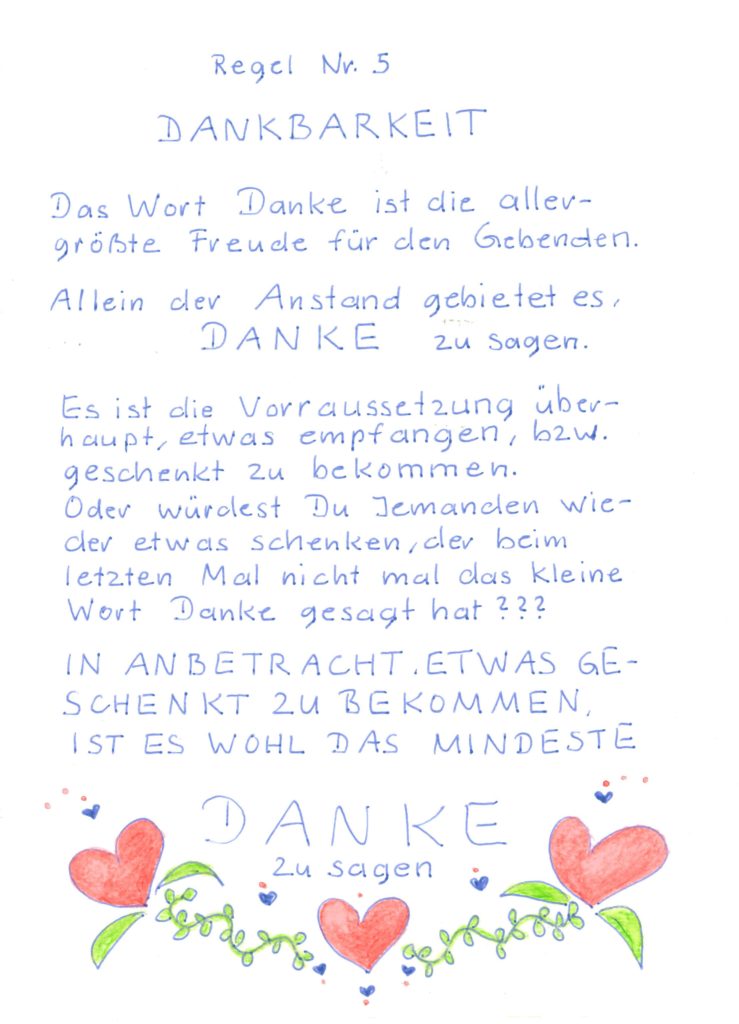 Regel Nr. 5
DANKBARKEIT
Das Wort Danke ist die aller-
größte Freude für den Gebenden.
Allein der Anstand gebietet es,
DANKE zu sagen.
Es ist die Vorraussetzung über-
haupt, etwas empfangen, bzw.
geschenkt zu bekommen.
Oder würdest Du Jemanden wie-
der etwas schenken, der beim
letzten Mal nicht mal das kleine
Wort Danke gesagt hat???
IN ANBETRACHT, ETWAS GE-
SCHENKT ZU BEKOMMEN,
IST ES WOHL DAS MINDESTE
DANKE
zu sagen